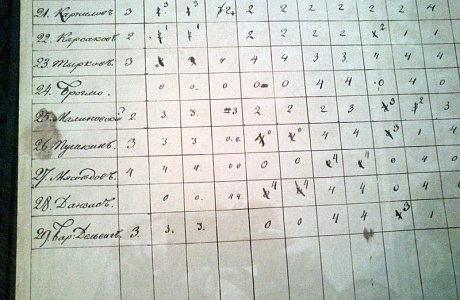 21. Корниловъ 3 3 3 2 2 2 2 2 2 2 4
22. Корсаковъ 2 1 1 2 2 2 2 2 1
23. Тырковъ. 3 4 4 4 3 3 4 4 4
24. Брогліо. 0. 0. 0. 0 0 4 4 0 4 0
25. Малиновскій 2 3. 3. 3 2 2 2 3 3 2 3
26. Пушкинъ. 3 3 3 0.0. 0 0 4 4 3 1 4
27. Мясоѣдовъ. 4 4 4. 00 0 0 4 4 0 4 0
28. Данзасъ. 0 0. 44. 4 4 4 4 0 4 0
29. Бар: Дельвигъ. 3. 3. 3. 0 0 4 4 3 1